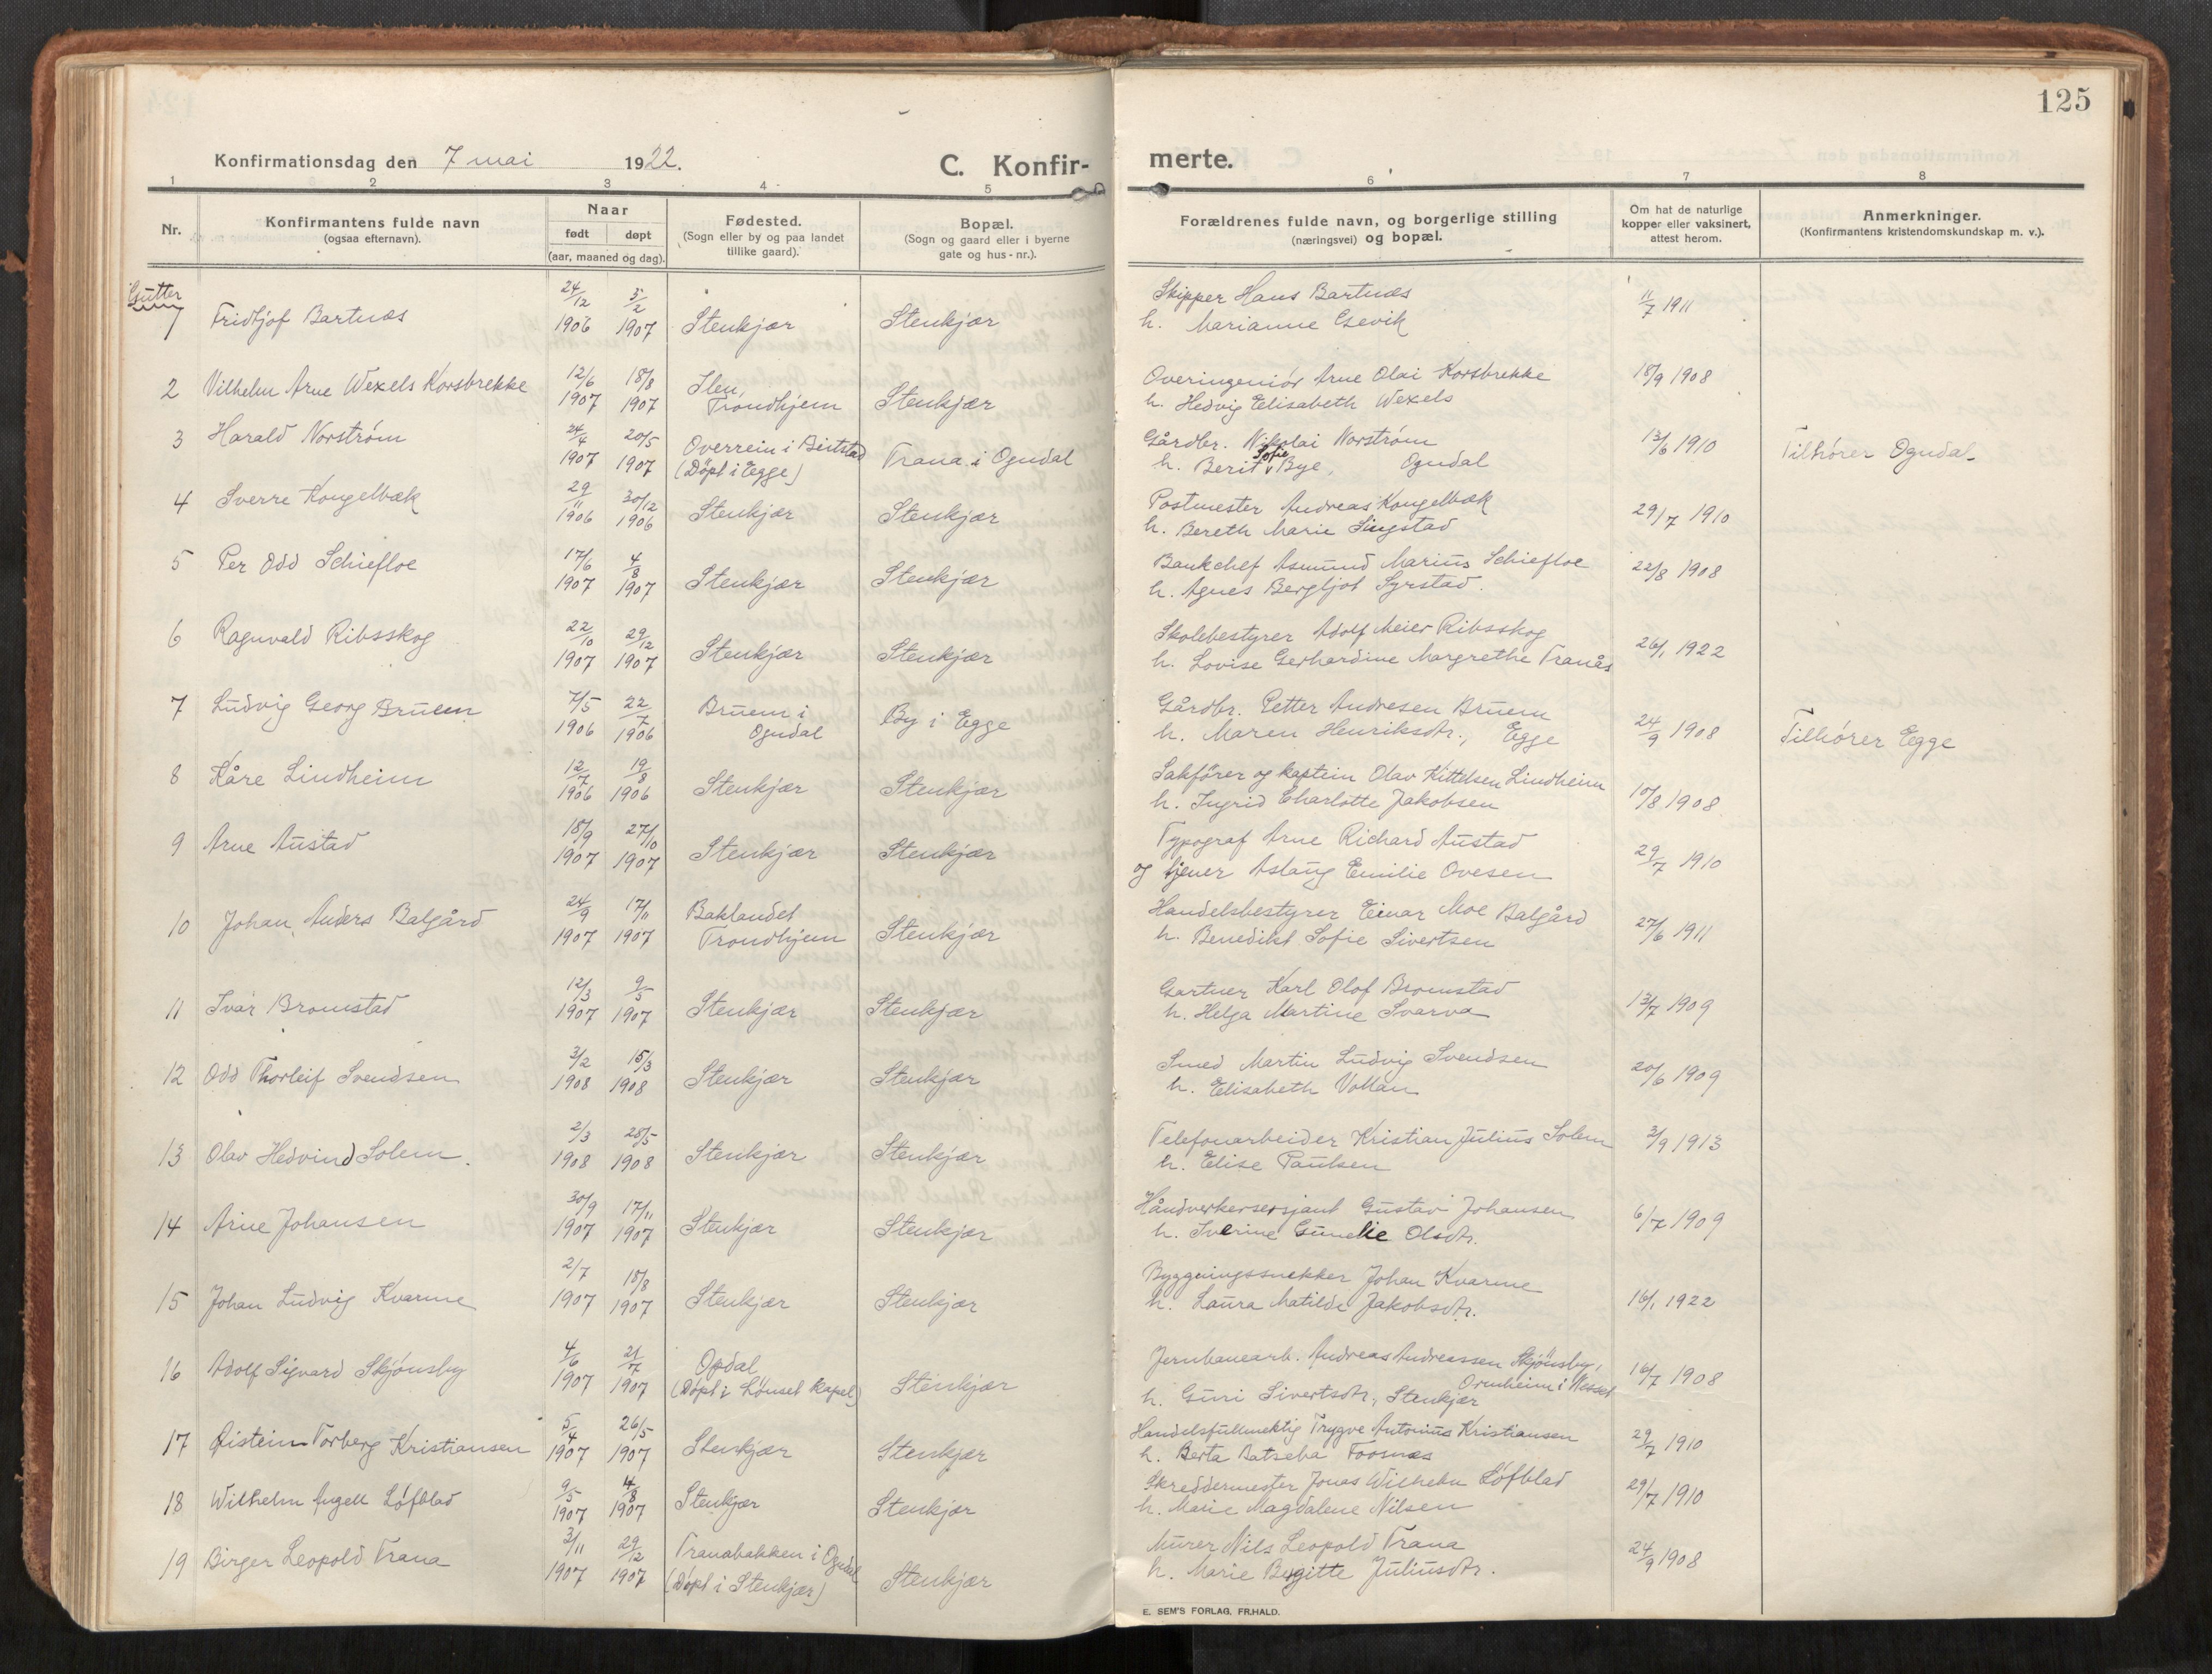 125
Konfirmationsdag den 7 mai 1922.
C. Konfir-
merte.
1 2 3 4 5 6 7 8
Nr.
Konfirmantens fulde navn
(ogsaa efternavn).
Naar
født døpt
(aar, maaned og dag).
Fødested.
(Sogn eller by og paa landet
tillike gaard).
Bopæl.
(Sogn og gaard eller i byerne
gate og hus-nr.).
Forældrenes fulde navn, og borgerlige stilling
(næringsvei) og bopæl.
Om hat de naturlige
kopper eller vaksinert,
attest herom.
Anmerkninger.
(Konfirmantens kristendomskundskap m. v.).
Gutter
1 Fridtjof Bartnæs 24/12 1906 5/2 1907 Stenkjær Stenkjær
Skipper Hans Bartnæs
h. Marianne Esevik
11/7 1911
2 Vilhelm Arne Wexels Korsbrekke 12/6 1907 18/8 1907 Ilen, Trondhjem Stenkjær
Overingeniør Arne Olai Korsbrekke
h. Hedvig Elisabeth Wexels
18/9 1908
3 Harald Norstrøm 24/4 1907 20/5 1907 Overrein i Beitstad (Döpt i Egge) Trana i Ogndal
Gårdbr. Nikolai Norstrøm
h. Berit Sofie Bye, Ogndal
13/6 1910 Tilhører Ogndal
4 Sverre Kongelbæk 29/11 1906 30/12 1906 Stenkjær Stenkjær
Postmester Andreas Kongelbæk
h. Bereth Marie Singstad
29/7 1910
5 Per Odd Schiefloe 17/6 1907 4/8 1907 Stenkjær Stenkjær
Bankchef Asmund Marius Schiefloe
h. Agnes Bergljot Syrstad.
22/8 1908
6 Ragnvald Ribsskog 22/10 1907 29/12 1907 Stenkjær Stenkjær
Skolebestyrer Adolf Meier Ribsskog
h. Lovise Gerhardine Margrethe Tranås
26/1 1922
7 Ludvig Georg Bruem 7/5 1906 22/7 1906 Bruem i Ogndal By i Egge
Gårdbr. Petter Andresen Bruem
h. Maren Henriksdtr., Egge
24/9 1908 Tilhører Egge
8 Kåre Lindheim 12/7 1906 19/8 1906 Stenkjær Stenkjær
Sakfører og kaptein Olav Kittelsen Lindheim
h. Ingrid Charlotte Jakobsen
10/8 1908
9 Arne Austad 18/9 1907 27/10 1907 Stenkjær Stenkjær
Typograf Arne Richard Austad
og tjener Aslaug Emilie Ovesen
29/7 1910
10 Johan Anders Balgård 24/9 1907 17/11 1907 Baklandet Trondhjem Stenkjær
Handelsbestyrer Einar Moe Balgård
h. Benedikt Sofie Sivertsen
27/6 1911
11 Ivar Bromstad 12/3 1907 9/5 1907 Stenkjær Stenkjær
Gartner Karl Olof Bromstad
h. Helga Martine Svarva
13/7 1909
12 Odd Thorleif Svendsen 3/2 1908 15/3 1908 Stenkjær Stenkjær
Smed Martin Ludvig Svendsen
h. Elisabeth Vollan
20/6 1909
13 Olav Hedvind Solem. 2/3 1908 28/5 1908 Stenkjær Stenkjær
Telefonarbeider Kristian Julius Solem
h. Elise Paulsen
2/9 1913
14 Arne Johansen 30/9 1907 17/11 1907 Stenkjær Stenkjær
Håndverkersersjant Gustav Johansen
h. Iverine Gunelie Olsdtr.
6/7 1909
15 Johan Ludvig Kvarme 2/7 1907 18/8 1907 Stenkjær Stenkjær
Bygningssnekker Johan Kvarme
h. Laura Matilde Jakobsdtr.
16/1 1922
16 Adolf Sigvard Skjønsby 4/6 1907 21/7 1907 Opdal (Döpt i Lönset kapel) Stenkjær
Jernbanearb. Andreas Andreassen Skjønsby,
Ornheim i
h. Guri Sivertsdtr., Stenkjær
16/7 1908
17 Øistein Torberg Kristiansen 5/4 1907 26/5 1907 Stenkjær Stenkjær
Handelsfullmektig Trygve Antonius Kristiansen
h. Berta Batseba Foosnæs
29/7 1910
18 Wilhelm Angell Løfblad 9/5 1907 4/8 1907 Stenkjær Stenkjær
Skreddermester Jonas Wilhelm Løfblad
h. Marie Magdalene Nilsen
29/7 1910
19 Birger Leopold Trana 3/11 1907 29/12 1907 Tranabakken i Ogndal (Döpt i Stenkjær) Stenkjær
Murer Nils Leopold Trana
h. Marie Birgitte Juliusdtr.
24/9 1908
E. SEM'S FORLAG, FR.HALD.